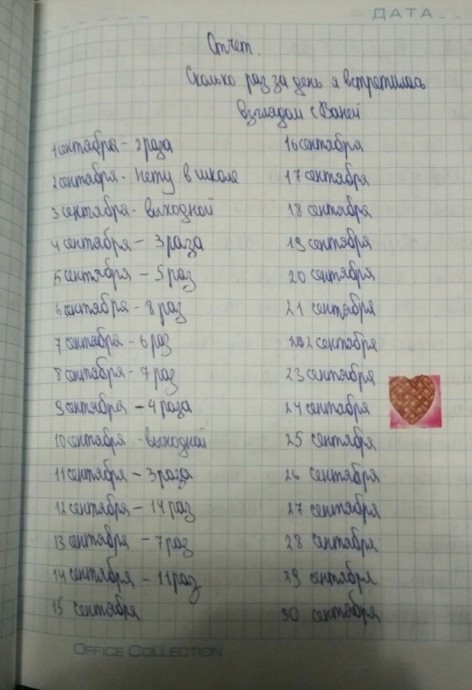 ДАТА
Отчет.
Сколько раз за день я встретилась
взглядом с Ваней
1 сентября - 2 раза
2 сентября - Нету в школе
3 сентября - выходной
4 сентября - 3 раза
5 сентября - 5 раз
6 сентября - 8 раз
7 сентября - 6 раз
8 сентября - 7 раз
9 сентября - 4 раза
10 сентября - выходной
11 сентября - 3 раза
12 сентября - 14 раз
13 сентября - 7 раз
14 сентября - 11 раз
15 сентября
16 сентября
17 сентября
18 сентября
19 сентября
20 сентября
21 сентября
22 сентября
23 сентября
24 сентября
25 сентября
26 сентября
27 сентября
28 сентября
29 сентября
30 сентября
OFFICE COLLECTION